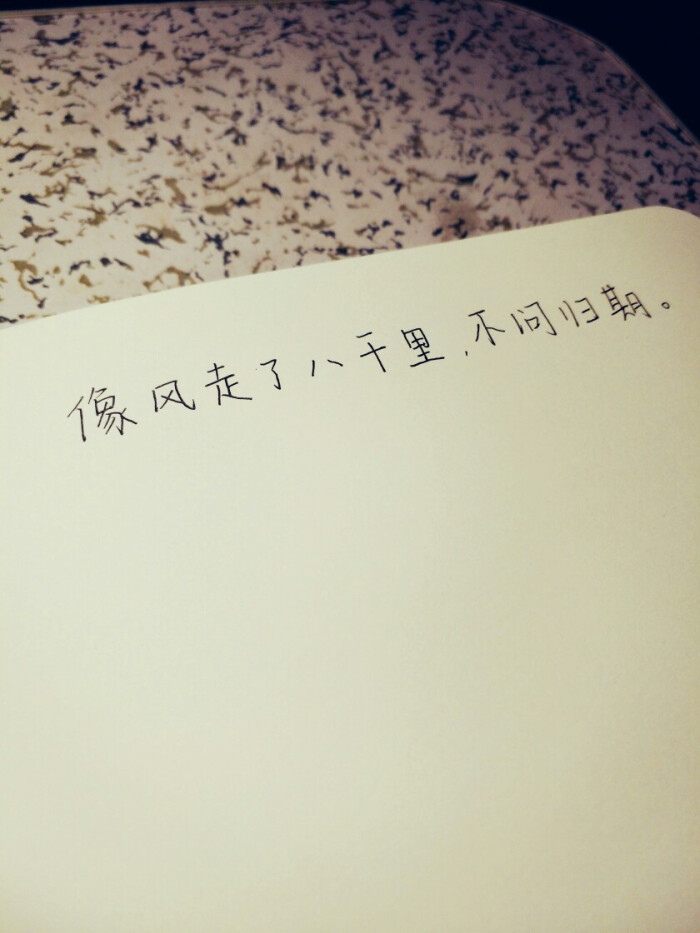 像风走了八千里,不问归期。